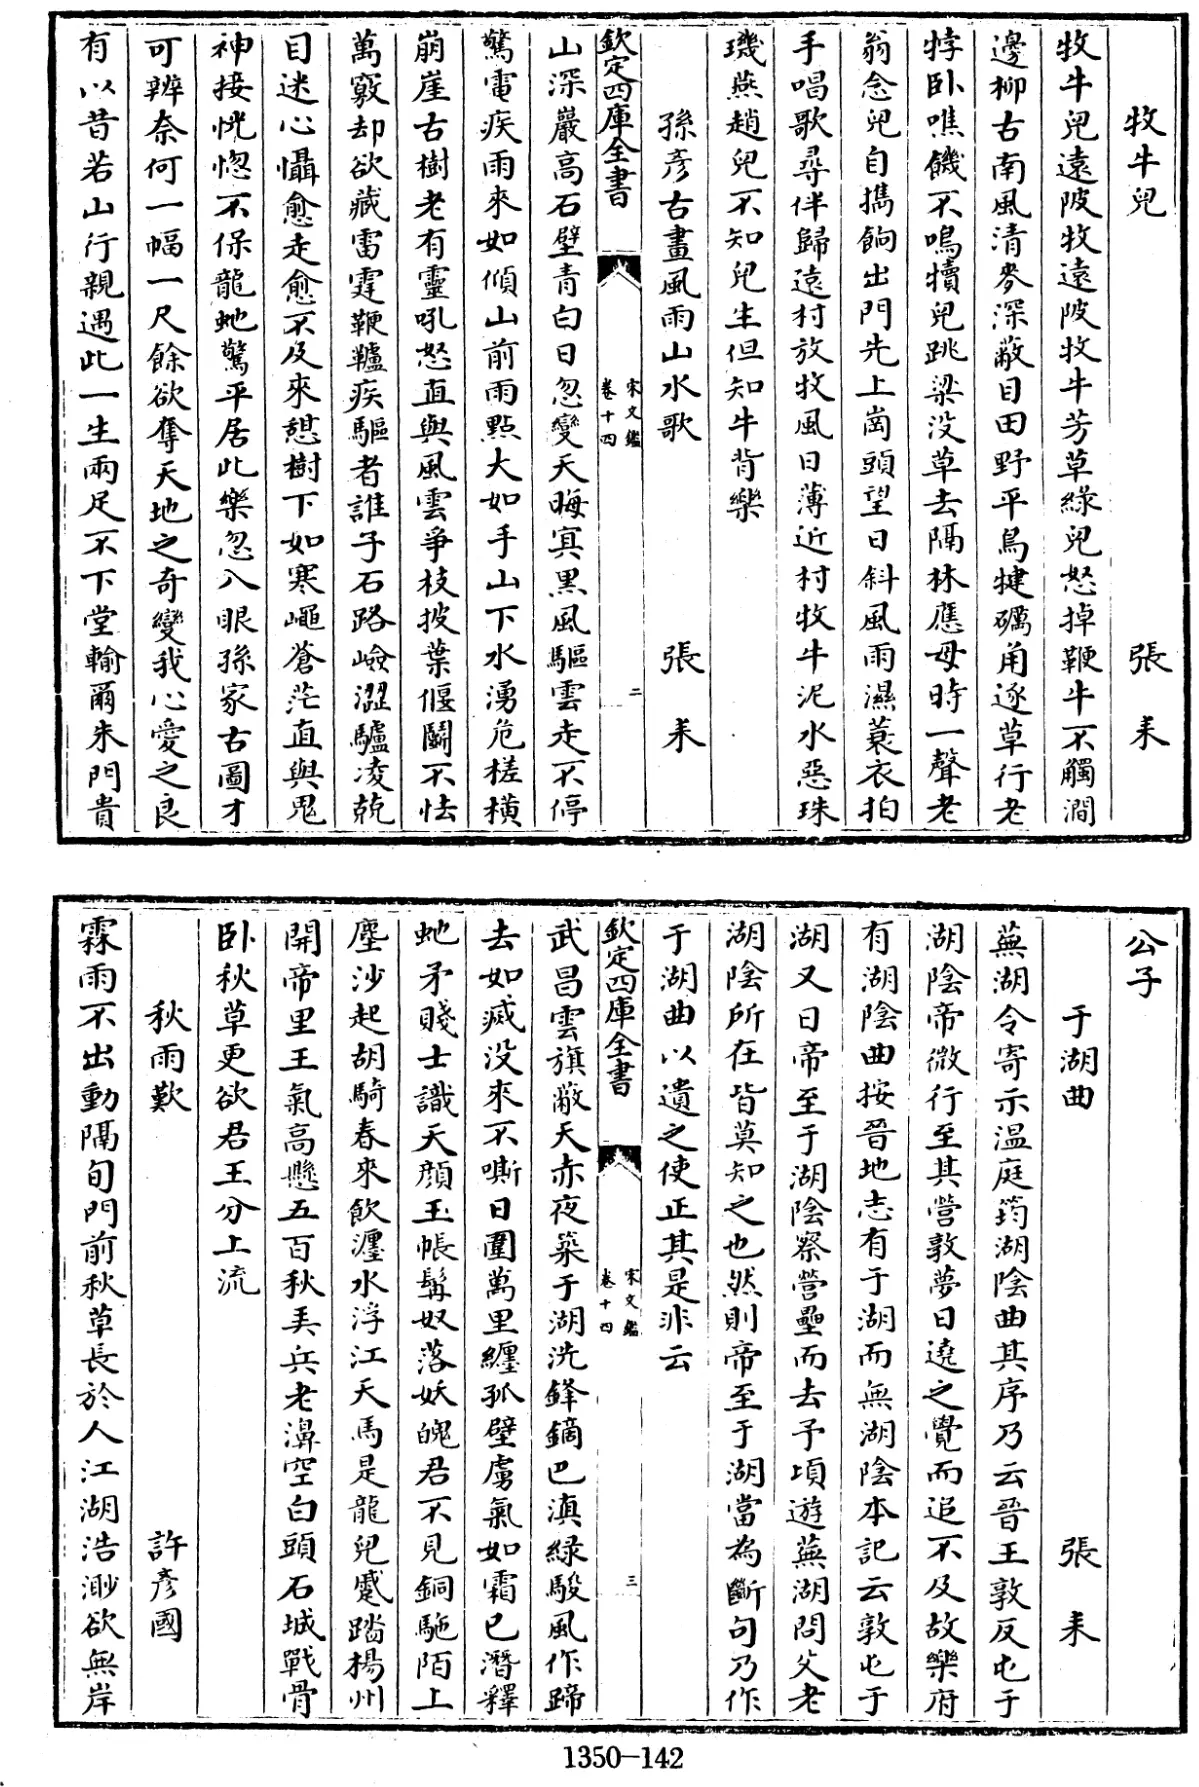 牧牛兒　張耒
牧牛兒遠陂牧遠陂牧牛芳草綠兒怒掉鞭牛不觸澗
邊柳古南風清麥深蔽目田野平烏犍礪角逐草行老
牸卧噍饑不鳴犢兒跳梁没草去隔林應母時一聲老
翁念兒自擕餉出門先上崗頭望日斜風雨濕蓑衣拍
手唱歌尋伴歸遠村放牧風日薄近村牧牛泥水惡珠
璣燕趙兒不知兒生但知牛背樂
孫彦古畫風雨山水歌　張耒
欽定四庫全書　宋文鑑卷十四　二
山深巖高石壁青白日忽變天晦㝠黒風驅雲走不停
驚電疾雨來如傾山前雨㸃大如手山下水湧危槎横
崩崖古樹老有靈吼怒直與風雲爭枝披葉偃鬭不怯
萬竅却欲藏雷霆鞭驢疾驅者誰子石路嶮澀驢凌兢
目迷心懾愈走愈不及來憩樹下如寒蠅蒼茫直與鬼
神接恍惚不保龍虵驚平居此樂忽入眼孫家古圖才
可辨奈何一幅一尺餘欲奪天地之奇變我心愛之良
有以昔若山行親遇此一生兩足不下堂輸爾朱門貴
公子
于湖曲　張耒
蕪湖令寄示温庭筠湖陰曲其序乃云晉王敦反屯于
湖陰帝微行至其營敦夢日遶之覺而追不及故樂府
有湖陰曲按晉地志有于湖而無湖陰本記云敦屯于
湖又曰帝至于湖陰察營壘而去予頃遊蕪湖問父老
湖陰所在皆莫知之也然則帝至于湖當為斷句乃作
于湖曲以遺之使正其是非云
欽定四庫全書　宋文鑑卷十四　三
武昌雲旗蔽天赤夜築于湖洗鋒鏑巴滇緑駿風作蹄
去如滅没來不嘶日圍萬里纒孤壁虜氣如霜已潛釋
虵矛賤士識天顔玉帳髯奴落妖魄君不見銅駞陌上
塵沙起胡騎春來飲瀍水浮江天馬是龍兒蹙踏楊州
開帝里王氣高懸五百秋弄兵老濞空白頭石城戰骨
卧秋草更欲君王分上流
秋雨歎　許彦國
霖雨不出動隔旬門前秋草長於人江湖浩渺欲無岸
1350—142